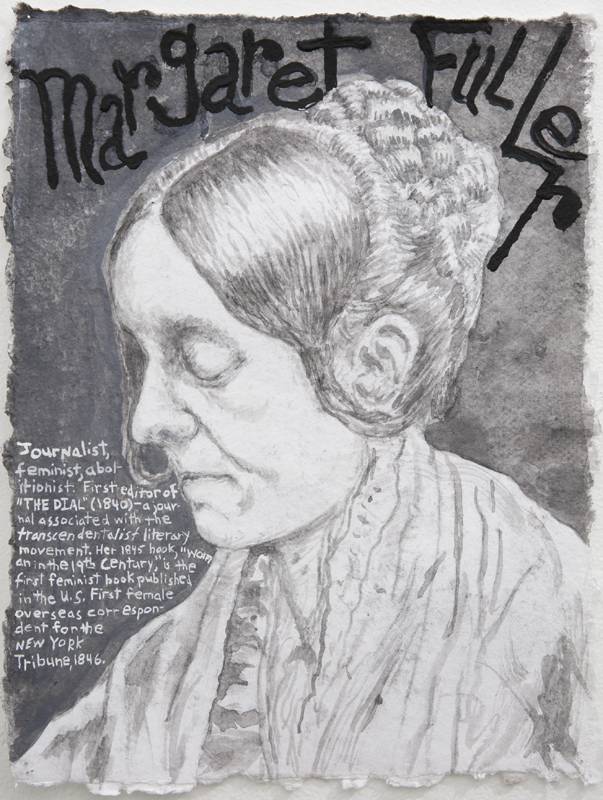 Margaret Fuller
Journalist,
feminist, abol-
itionist. First editor of
"THE DIAL" (1840)-a jour-
nal associated with the
transcendentalist literary
movement. Her 1845 book, "Wom
an in the 19th Century," is the
first feminist book published
in the U.S. First female
overseas correspon-
dent for the
NEW YORK
Tribune, 1846.